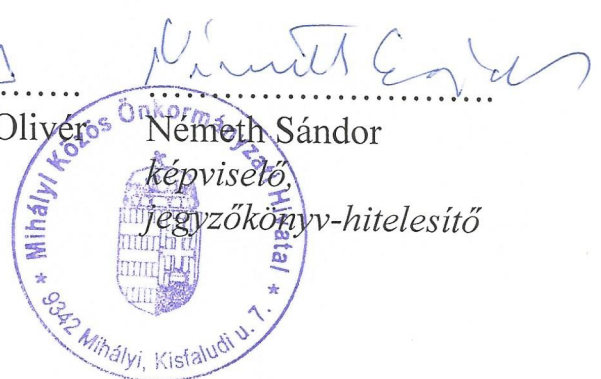 Németh Sándor
Olivér Németh Sándor
képviselő,
jegyzőkönyv-hitelesítő
* Mihályi Közös Önkormányzati Hivatal *
9342 Mihályi, Kisfaludi u. 7.